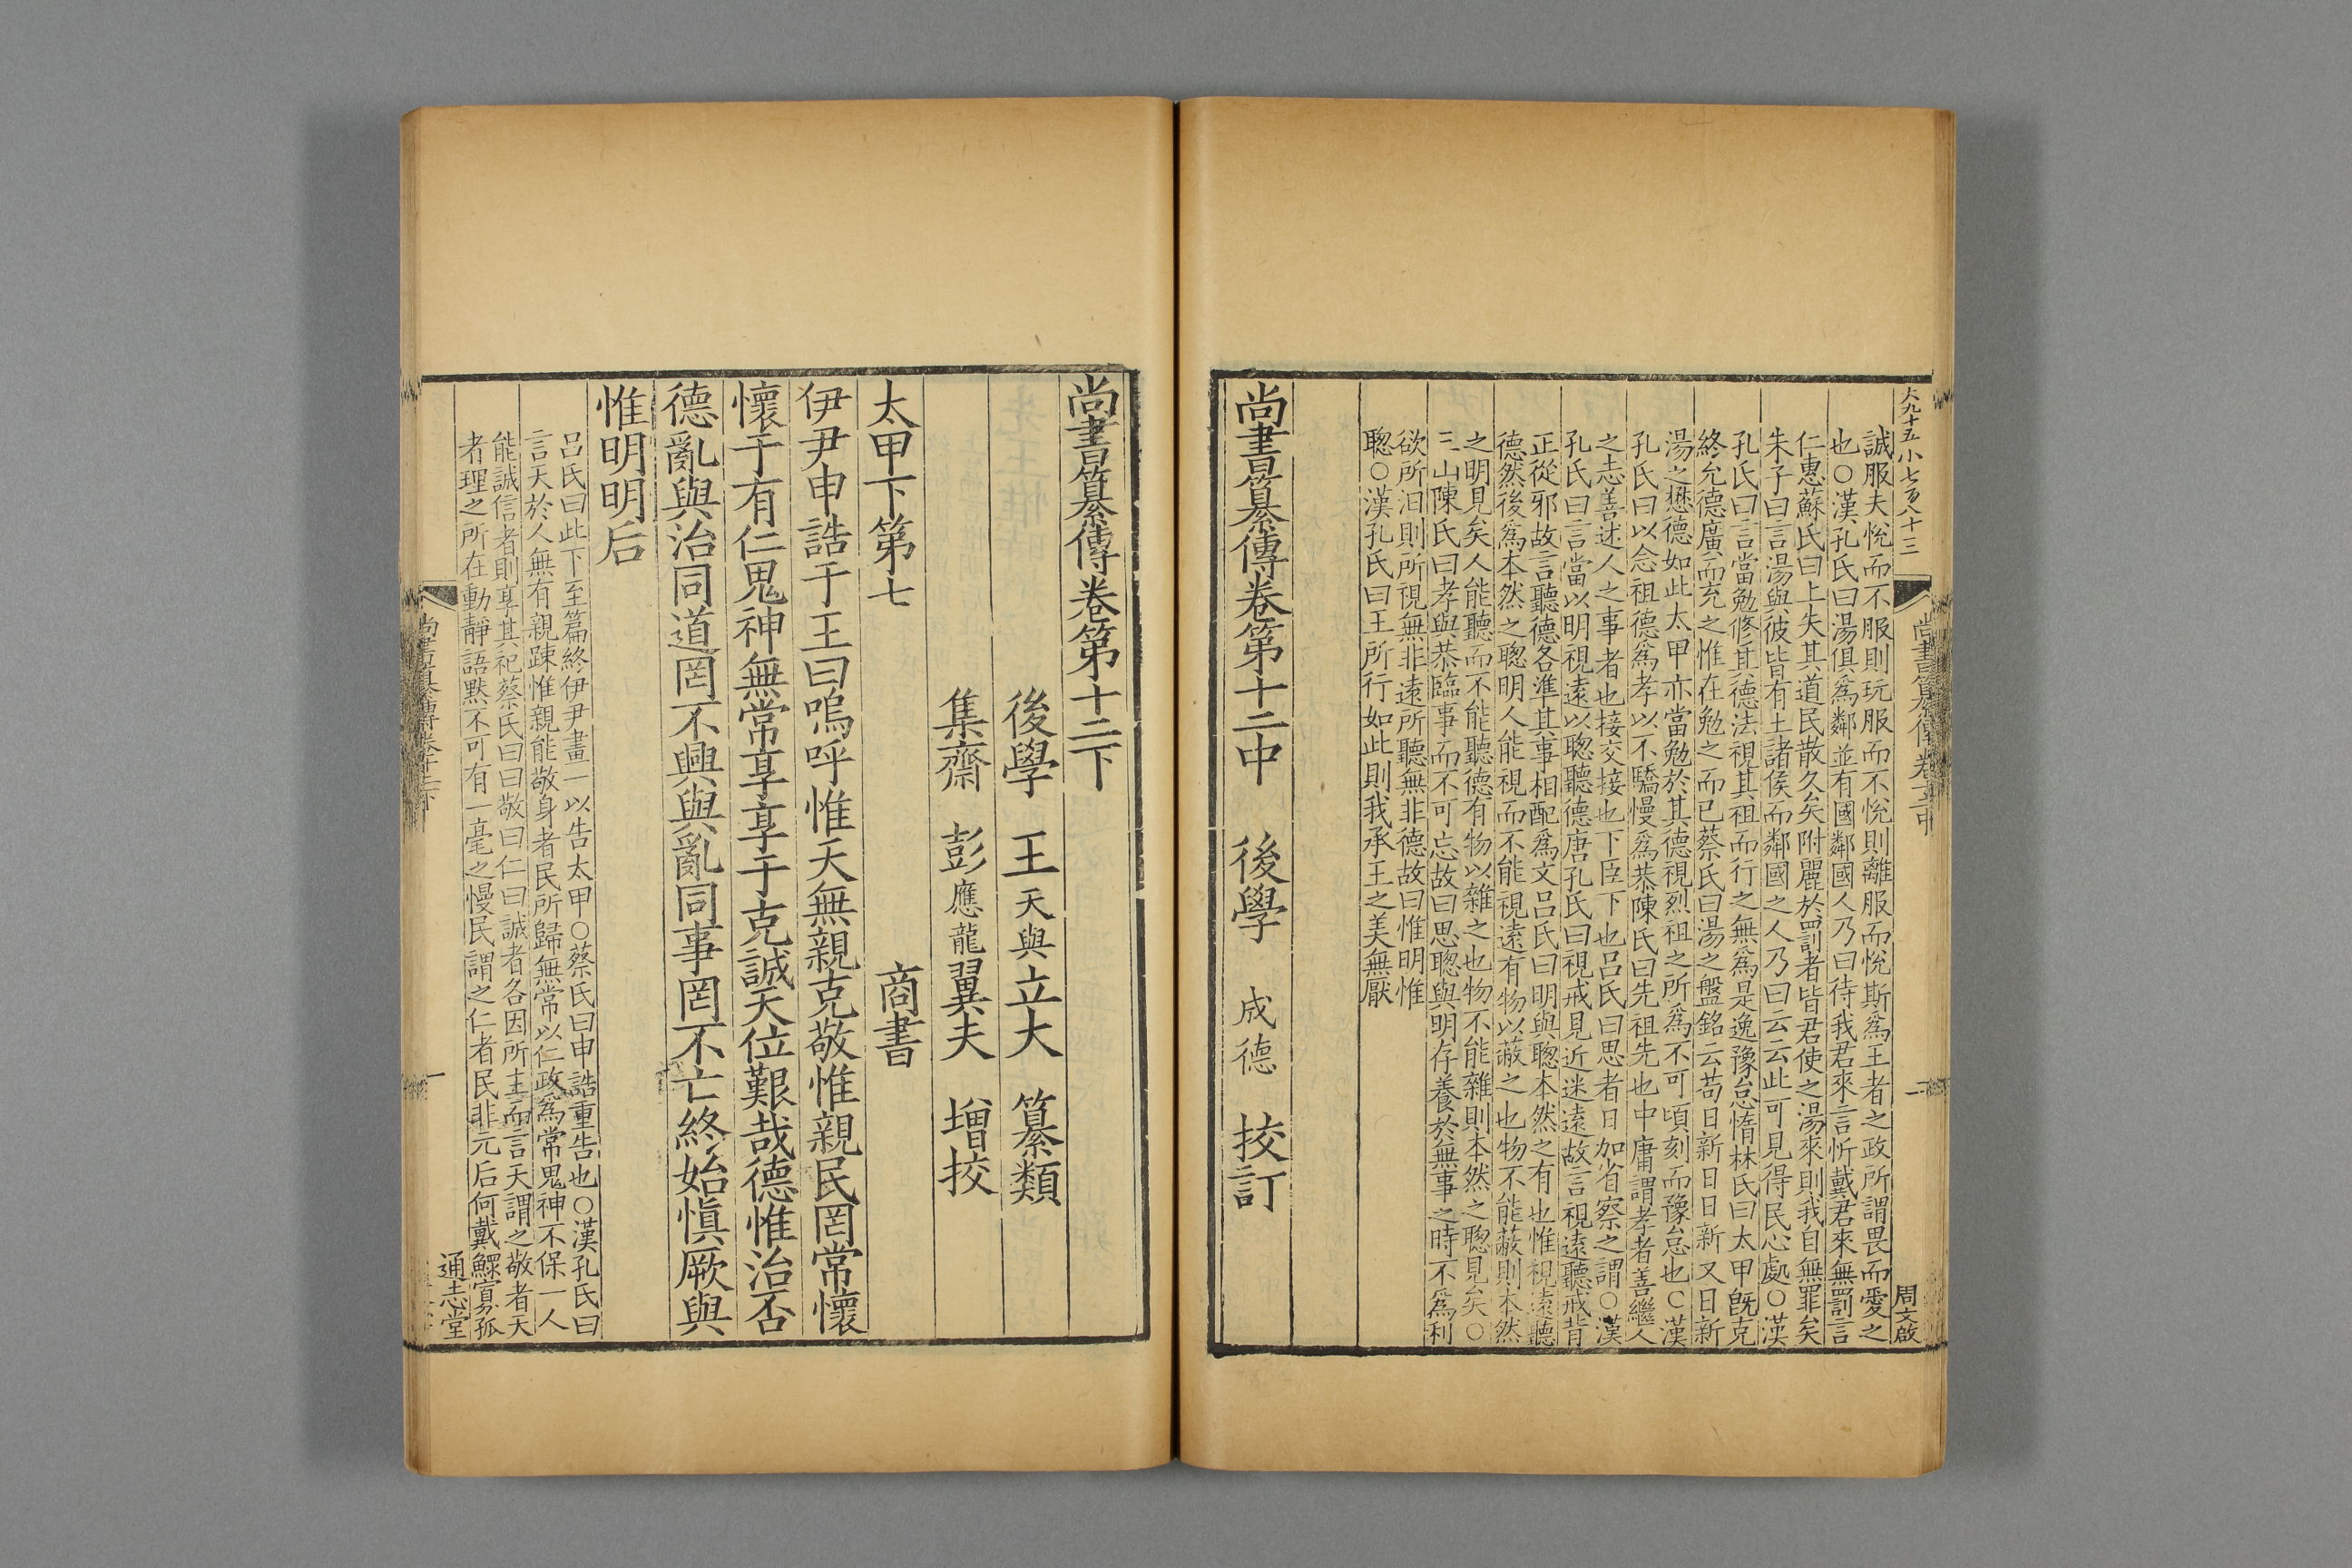 大九十五小七百八十三
尚書纂傳卷十二中
二
周文啟
誠服夫悅而不服則玩服而不悅則離服而悅斯為王者之政所謂畏而愛之
也○漢孔氏曰湯俱為鄰並有國鄰國人乃曰待我君來言忻戴君來無罰言
仁惠蘇氏曰上失其道民散久矣附麗於罰者皆君使之湯來則我自無罪矣
朱子曰言湯與彼皆有土諸侯而鄰國之人乃曰云云此可見得民心處○漢
孔氏曰言當勉修其德法視其祖而行之無為是逸豫怠惰林氏曰太甲旣克
終允德廣而充之惟在勉之而已蔡氏曰湯之盤銘云苟日新日日新又日新
湯之懋德如此太甲亦當勉於其德視烈祖之所為不可頃刻而豫怠也○漢
孔氏曰以念祖德為孝以不驕慢為恭陳氏曰先祖先也中庸謂孝者善繼人
之志善述人之事者也接交接也下臣下也呂氏曰思者日加省察之謂○漢
孔氏曰言當以明視遠以聦聽德唐孔氏曰視戒見近迷遠故言視遠聽戒背
正從邪故言聽德各準其事相配為文呂氏曰明與聦本然之有也惟視遠聽
德然後為本然之聦明人能視而不能視遠有物以蔽之也物不能蔽則本然
之明見矣人能聽而不能聽德有物以雜之也物不能雜則本然之聦見矣○
三山陳氏曰孝與恭臨事而不可忘故曰思聦與明存養於無事之時不為利
欲所汨則所視無非遠所聽無非德故曰惟明惟
聦○漢孔氏曰王所行如此則我承王之美無厭
尚書纂傳卷第十二中 後學 成德 挍訂
尚書纂傳卷第十二下
後學 王天與立大 纂類
集齋 彭應龍翼夫 增挍
太甲下第七 商書
伊尹申誥于王曰嗚呼惟天無親克敬惟親民罔常懷
懷于有仁鬼神無常享享于克誠天位艱哉德惟治否
德亂與治同道罔不興與亂同事罔不亡終始愼厥與
惟明明后
呂氏曰此下至篇終伊尹畫一以告太甲○蔡氏曰申誥重告也○漢孔氏曰
言天於人無有親踈惟親能敬身者民所歸無常以仁政為常鬼神不保一人
能誠信者則享其祀蔡氏曰曰敬曰仁曰誠者各因所主而言天謂之敬者天
者理之所在動靜語默不可有一毫之慢民謂之仁者民非元后何戴鰥寡孤
尚書纂傳卷十二下
一
通志堂